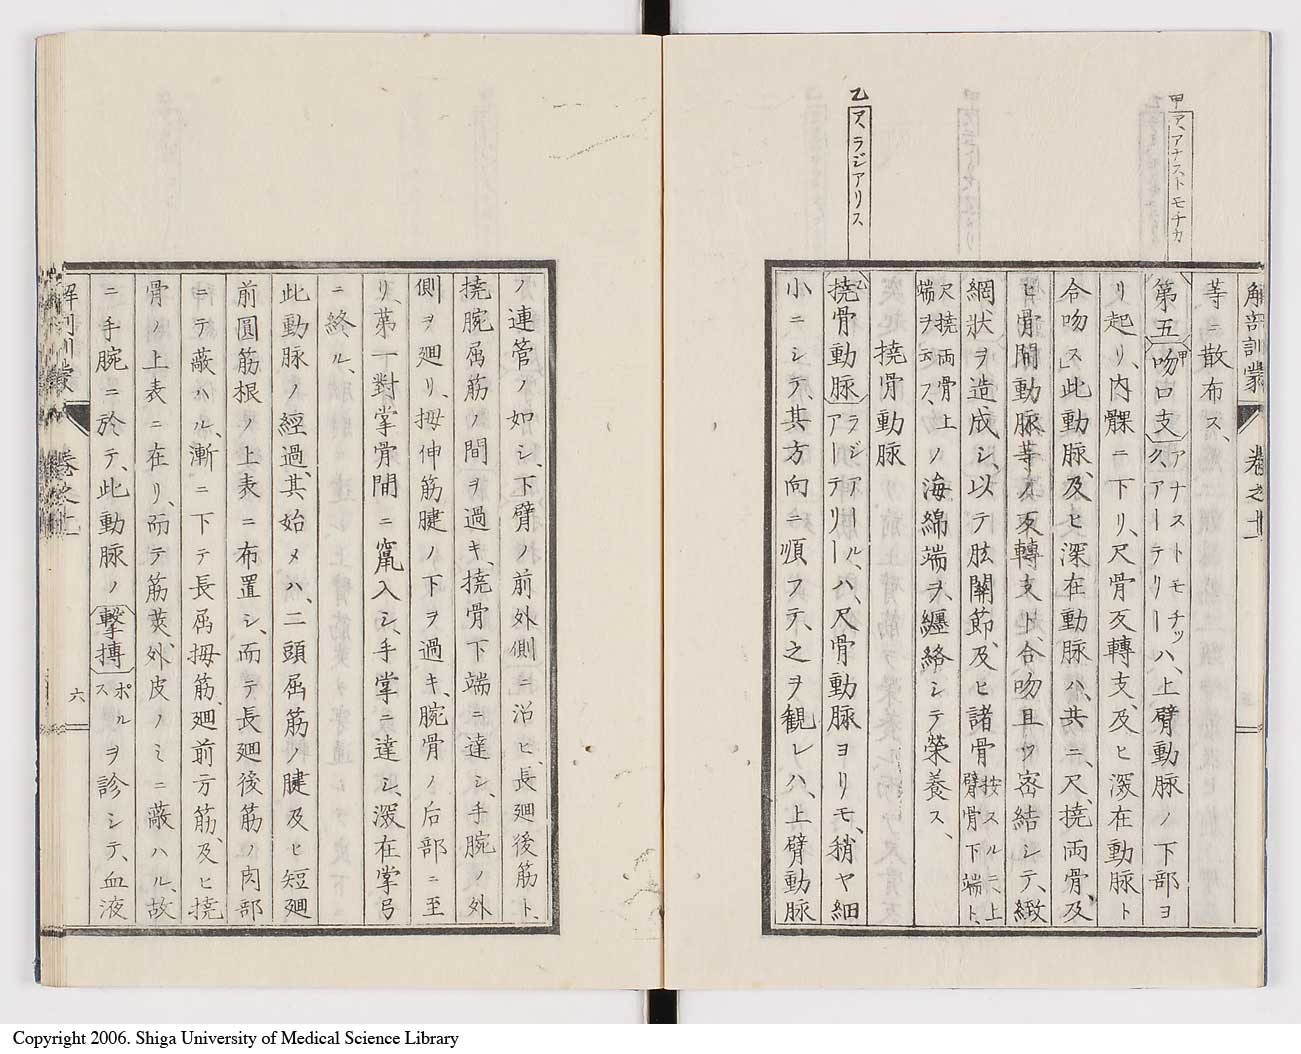 甲 ア、アナストモチカ
乙 ア、ラジアリス
解剖訓蒙 卷之十一
等ニ散布ス、
第五吻口支 アナストモチック、アーテリーハ、上臂動脉ノ下部ヨ
リ起リ、内髁ニ下リ、尺骨反轉支、及ヒ深在動脉ト
合吻ス」此動脉、及ヒ深在動脉ハ、共ニ、尺、撓両骨、及
ヒ骨間動脉等ノ反轉支ト、合吻且ツ密結シテ、緻
網狀ヲ造成シ、以テ肱關節、及ヒ諸骨 按スルニ上臂骨下端ト、
尺撓両骨上端ヲ云フ、ノ海綿端ヲ、纏絡シテ榮養ス、
撓骨動脉
乙 撓骨動脉 ラジアール、アーテリー、ハ、尺骨動脉ヨリモ、稍ヤ細
小ニシテ、其方向ニ順フテ、之ヲ観レハ、上臂動脉
ノ連管ノ如シ、下臂ノ前外側ニ沿ヒ、長廻後筋ト、
撓腕屈筋ノ間ヲ過キ、撓骨下端ニ達シ、手腕ノ外
側ヲ廻リ、拇伸筋腱ノ下ヲ過キ、腕骨ノ后部ニ至
リ、第一對掌骨間ニ竄入シ、手掌ニ達シ、深在掌弓
ニ終ル、
此動脉ノ經過、其始メハ、二頭屈筋ノ腱及ヒ短廻
前圓筋根ノ上表ニ布置シ、而テ長廻後筋ノ肉部
ニテ蔽ハル、漸ニ下テ長屈拇筋、廻前方筋、及ヒ撓
骨ノ上表ニ在リ、而テ筋莢、外皮ノミニ蔽ハル、故
ニ手腕ニ於テ、此動脉ノ擊摶 ポルス ヲ診シテ、血液
解剖訓蒙 卷之十一 六
Copyright 2006. Shiga University of Medical Science Library